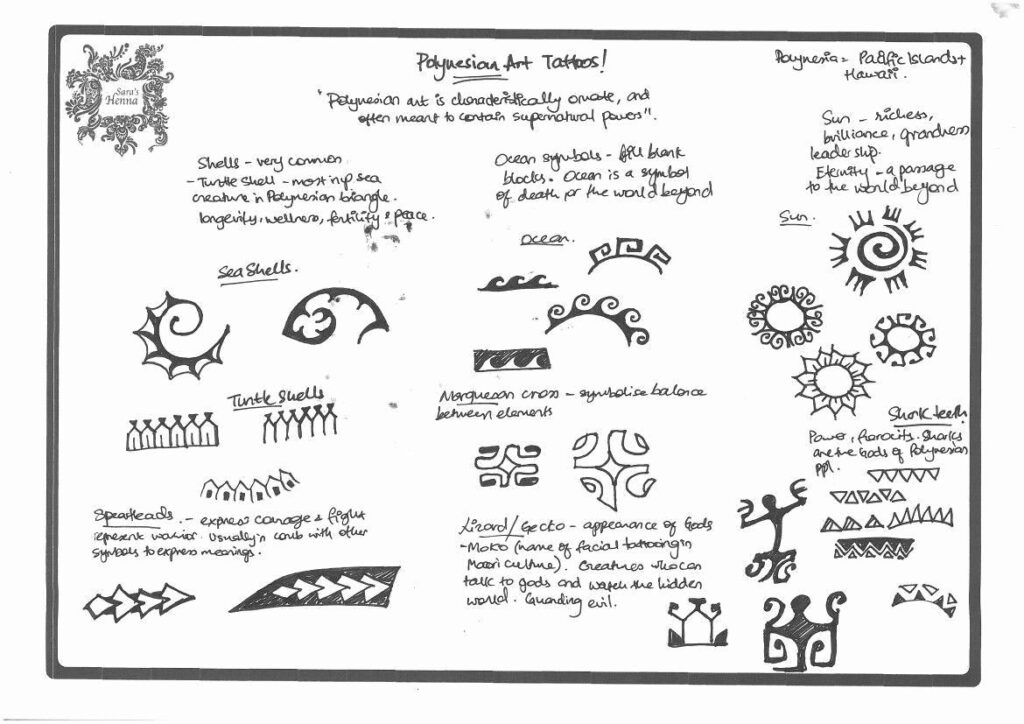 Sara's
Henna
Polynesian Art Tattoos!
"Polynesian art is characteristically ornate, and
often meant to contain supernatural powers".
Polynesia = Pacific Islands +
Hawaii.
Shells - very common
- Turtle Shell - most imp sea
creature in Polynesian triangle.
longevity, wellness, fertility & peace.
Sea Shells.
Turtle Shells
Spearheads. - express courage & fight
represent warrior. Usually in comb with other
symbols to express meanings.
Ocean symbols - fill blank
blocks. Ocean is a symbol
of death or the world beyond
Ocean.
Marquesan cross - symbolise balance
between elements
Lizard/Gecko - appearance of Gods
- Moko (name of facial tattooing in
Maori culture). Creatures who can
talk to gods and watch the hidden
world. Guarding evil.
Sun - richness,
brilliance, grandness
leadership.
Eternity - a passage
to the world beyond
Sun.
Shark teeth
Power, ferocity. Sharks
are the Gods of Polynesian
ppl.